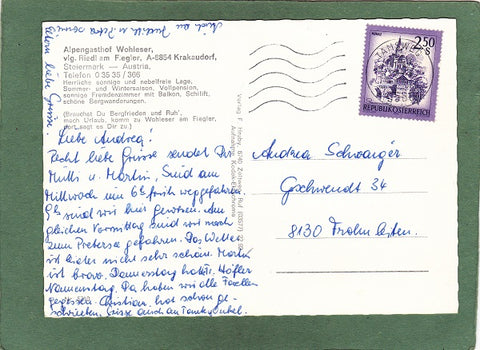 Alpengasthof Wohleser,
vlg. Riedl am F.egler, A-8854 Krakaudorf,
Steiermark — Austria.
Telefon 0 35 35 / 366
Herrliche sonnige und nebelfreie Lage.
Sommer- und Wintersaison, Vollpension,
sonnige Fremdenzimmer mit Balkon, Schilift,
schöne Bergwanderungen.
(Brauchst Du Bergfrieden und Ruh',
mach Urlaub, komm zu Wohleser am F.egler,
dort sagt es Dir zu.)
Liebe Andrea!
Recht liebe Grüsse sendet Dir
Mutti u. Martin. Sind am
Mittwoch um 6h früh weggefahren.
sind wir hier gewesen. Am
gleichen Vormittag sind wir noch
zum gefahren. Das Wetter
ist leider nicht sehr schön. Martin
ist brav. Donnerstag hatte
Namenstag. Da haben wir alle Forellen
gegessen. Christian hat schon ge-
schrieben. Grüsse auch an
Eltern liebe Grüsse.
Verlag F.
Andrea Schwaiger
Geschwendt 34
8130 Frohnleiten
2.50
S
REPUBLIK ÖSTERREICH